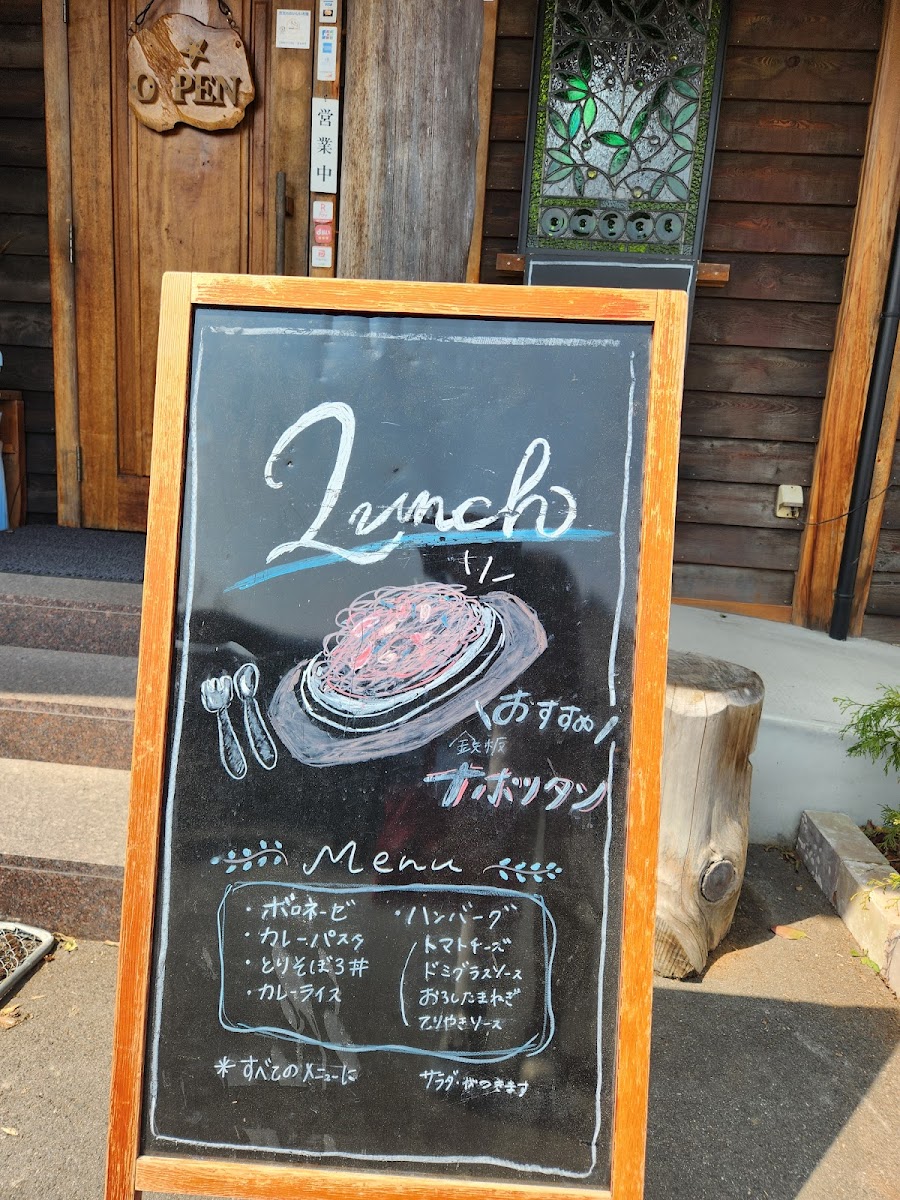 OPEN
営業中
Lunch
おすすめ
鉄板
ナポリタン
Menu
・ボロネーゼ
・カレーパスタ
・とりそぼろ丼
・カレーライス
・ハンバーグ
トマトチーズ
ドミグラスソース
おろしたまねぎ
てりやきソース
*すべてのメニューに
サラダがつきます